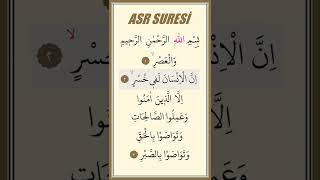 ASR SURESİ
بِسْمِ اللّٰهِ الرَّحْمٰنِ الرَّحِيمِ
وَالْعَصْرِۙ ١
اِنَّ الْاِنْسَانَ لَف۪ي خُسْرٍۙ ٢
اِلَّا الَّذ۪ينَ اٰمَنُوا
وَعَمِلُوا الصَّالِحَاتِ
وَتَوَاصَوْا بِالْحَقِّ
وَتَوَاصَوْا بِالصَّبْرِ ٣